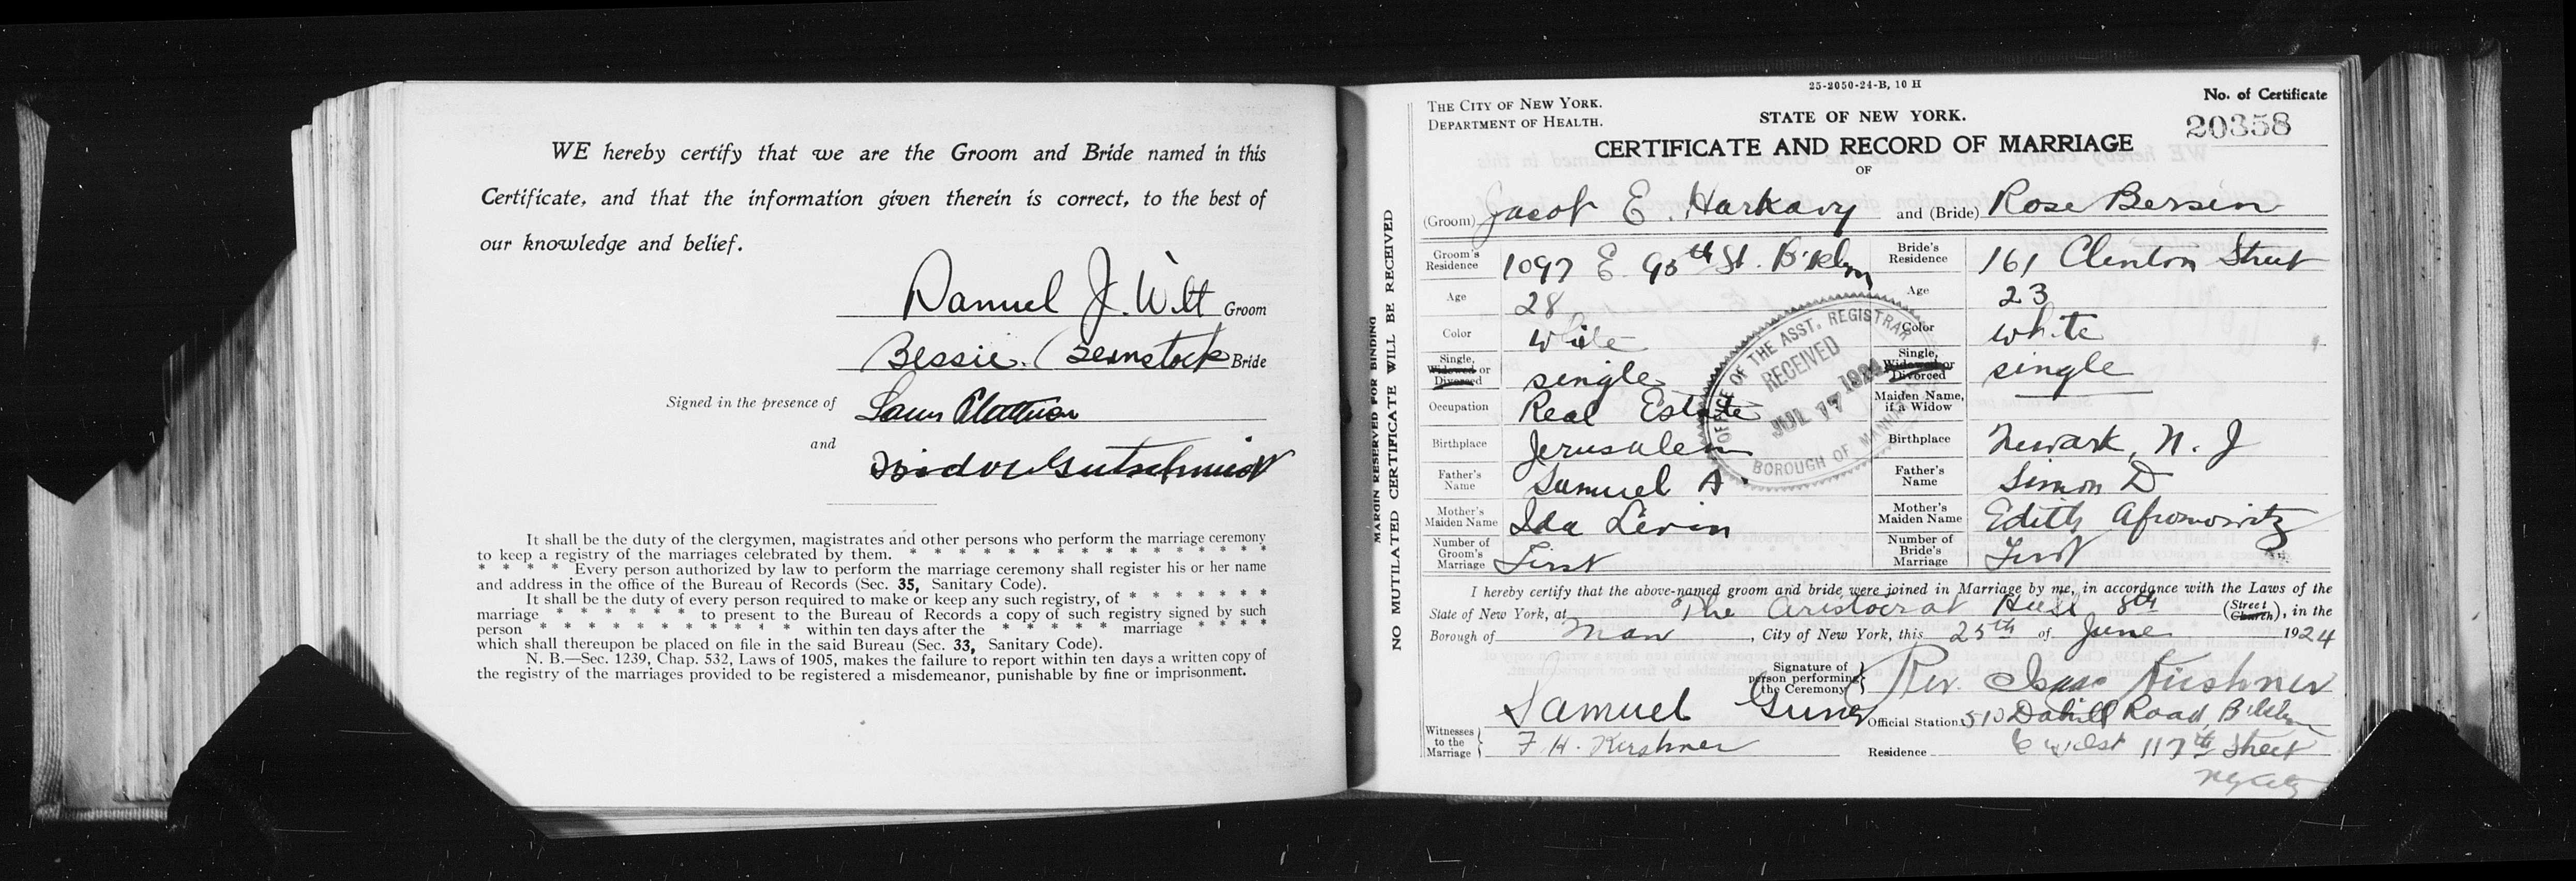 WE hereby certify that we are the Groom and Bride named in this
Certificate, and that the information given therein is correct, to the best of
our knowledge and belief.
Samuel J. Wilt Groom
Bessie Bernstock Bride
Signed in the presence of Louis
and Isidor Gutschmidt
It shall be the duty of the clergymen, magistrates and other persons who perform the marriage ceremony
to keep a registry of the marriages celebrated by them. * * * * * * * * * * * * * * *
* * * * Every person authorized by law to perform the marriage ceremony shall register his or her name
and address in the office of the Bureau of Records (Sec. 35, Sanitary Code).
It shall be the duty of every person required to make or keep any such registry, of * * * * * * *
marriage * * * * * * to present to the Bureau of Records a copy of such registry signed by such
person * * * * * * * * * * * within ten days after the * * * * * marriage * * * *
which shall thereupon be placed on file in the said Bureau (Sec. 33, Sanitary Code).
N. B.—Sec. 1239, Chap. 532, Laws of 1905, makes the failure to report within ten days a written copy of
the registry of the marriages provided to be registered a misdemeanor, punishable by fine or imprisonment.
MARGIN RESERVED FOR BINDING
NO MUTILATED CERTIFICATE WILL BE RECEIVED
25-2050-24-B, 10 H
THE CITY OF NEW YORK.
DEPARTMENT OF HEALTH.
STATE OF NEW YORK.
No. of Certificate
20358
CERTIFICATE AND RECORD OF MARRIAGE
OF
(Groom) Jacob E. Harkavy and (Bride) Rose Bersin
Groom's Residence 1097 E. 95th St. B'klyn Bride's Residence 161 Clinton Street
Age 28 Age 23
Color white Color white
Single, Widowed or Divorced single Single, Widowed or Divorced single
Occupation Real Estate Maiden Name, if a Widow
Birthplace Jerusalem Birthplace Newark, N. J
Father's Name Samuel A. Father's Name Simon D
Mother's Maiden Name Ida Levin Mother's Maiden Name Edith
Number of Groom's Marriage First Number of Bride's Marriage First
OFFICE OF THE ASST. REGISTRAR
RECEIVED
JUL 17 1924
BOROUGH OF MANHATTAN
I hereby certify that the above-named groom and bride were joined in Marriage by me, in accordance with the Laws of the
State of New York, at The Aristocrat Hall 8th (Street Church), in the
Borough of Man, City of New York, this 25th of June 1924
Signature of person performing the Ceremony Rev. Isaac Kushner
Witnesses to the Marriage Samuel
F. H. Kirshner
Official Station 510 Dahill Road, B'klyn
Residence 6 West 117th Street
N Y City